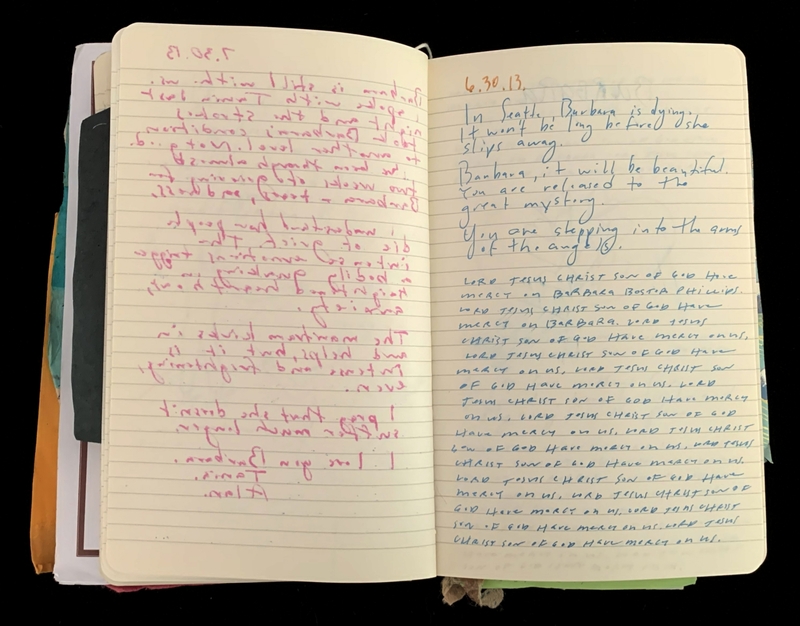 7.30.13
Barbara is still with us.
I spoke with last
night and she
Barbara's condition
to another level. Not good.
I've been through almost
two weeks of grieving for
Barbara + tears, sadness,
I understand how people
die of grief. The
intense emotional trigger
a bodily quaking in
heightened heart beat,
anxiety.
The mantram kicks in
and helps, but it is
intense and frightening,
even.
I pray that she doesn't
suffer much longer.
I love you Barbara.
Alan.
6.30.13
In Seattle, Barbara is dying.
It won't be long before she
slips away.
Barbara, it will be beautiful.
You are released to the
great mystory.
You are stepping into the arms
of the angel(s).
LORD JESUS CHRIST SON OF GOD HAVE
MERCY ON BARBARA BOSTER PHILLIPS.
LORD JESUS CHRIST SON OF GOD HAVE
MERCY ON BARBARA. LORD JESUS
CHRIST SON OF GOD HAVE MERCY ON US.
LORD JESUS CHRIST SON OF GOD HAVE
MERCY ON US. LORD JESUS CHRIST SON
OF GOD HAVE MERCY ON US. LORD
JESUS CHRIST SON OF GOD HAVE MERCY
ON US. LORD JESUS CHRIST SON OF GOD
HAVE MERCY ON US. LORD JESUS CHRIST
SON OF GOD HAVE MERCY ON US. LORD JESUS
CHRIST SON OF GOD HAVE MERCY ON US.
LORD JESUS CHRIST SON OF GOD HAVE
MERCY ON US. LORD JESUS CHRIST SON OF
GOD HAVE MERCY ON US. LORD JESUS CHRIST
SON OF GOD HAVE MERCY ON US. LORD JESUS
CHRIST SON OF GOD HAVE MERCY ON US.